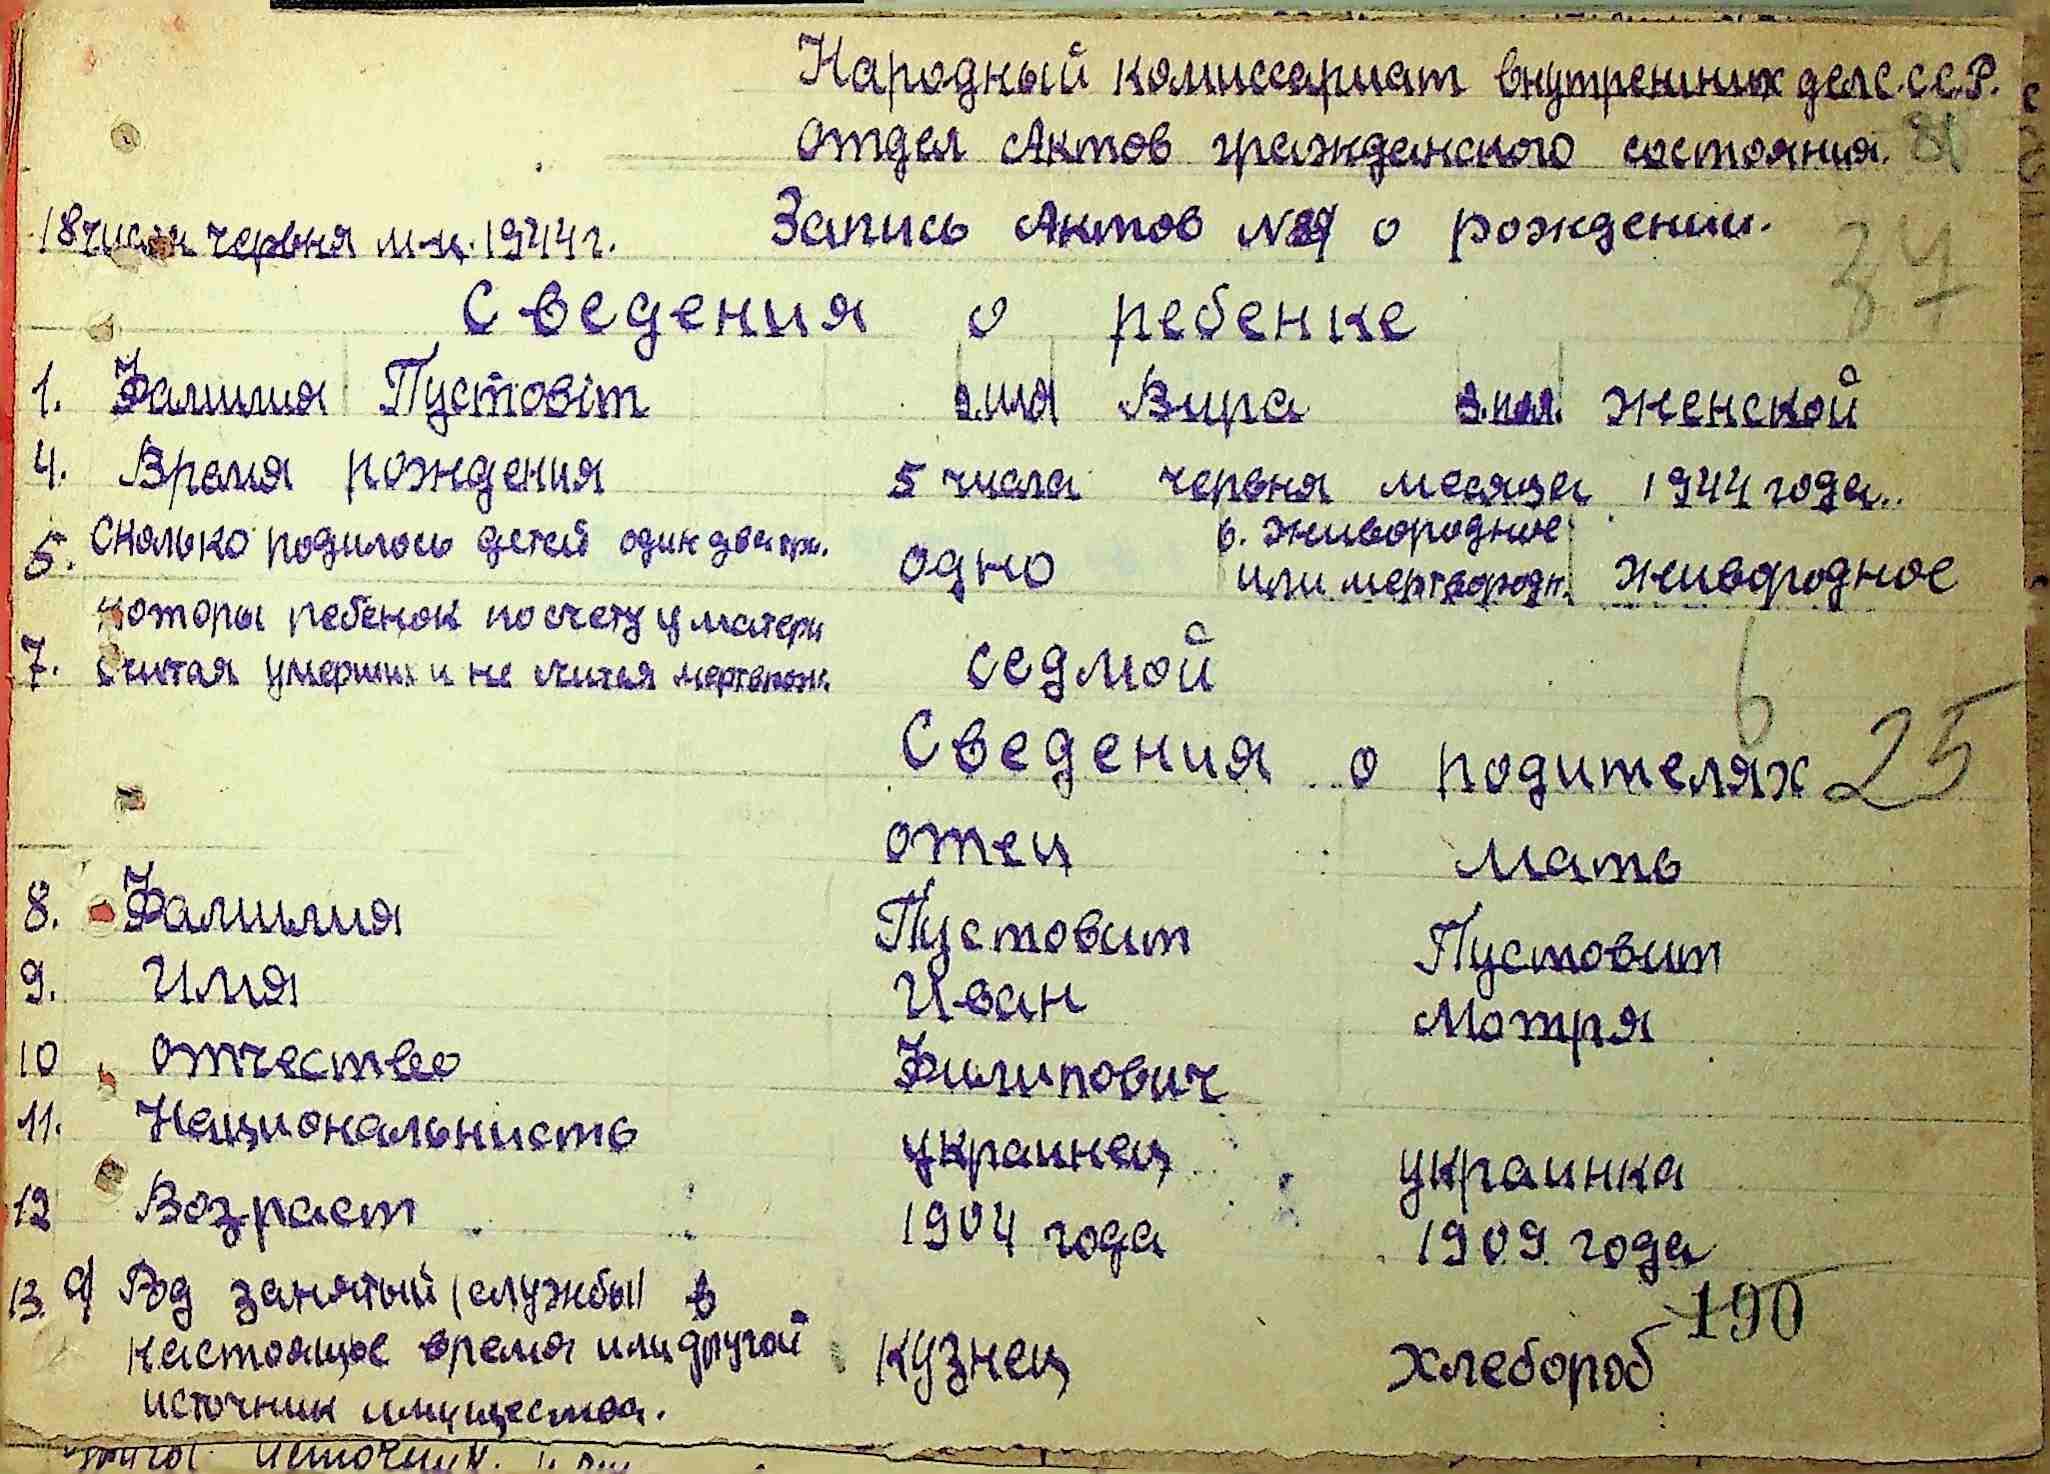 Народный комиссариат внутренних дел С.С.С.Р.
отдел Актов гражданского состояния.
18 числа червня м-ц. 1944 г. Запись Актов № о рождении.
37
Сведения о ребенке
1. Фамилия Пустовіт 2. имя Вира 3. пол. женской
4. Время рождения 5 числа червня месяца 1944 года.
5. Сколько родилось детей один две три. одно 6. живородное
или мертвородн. живородное
которы ребенок по счету у матери
7. считая умерших и не считая мертворож. седмой
6
Сведения о родителях 25
отец мать
8. Фамилия Пустовит Пустовит
9. Имя Иван Мотря
10 отчество Филипович
11. Национальнисть украинец украинка
12 Возраст 1904 года 1909 года
13. а) Род занятый (службы) в
настоящое время или другой кузнец хлебороб 190
источник имущества.
источник.